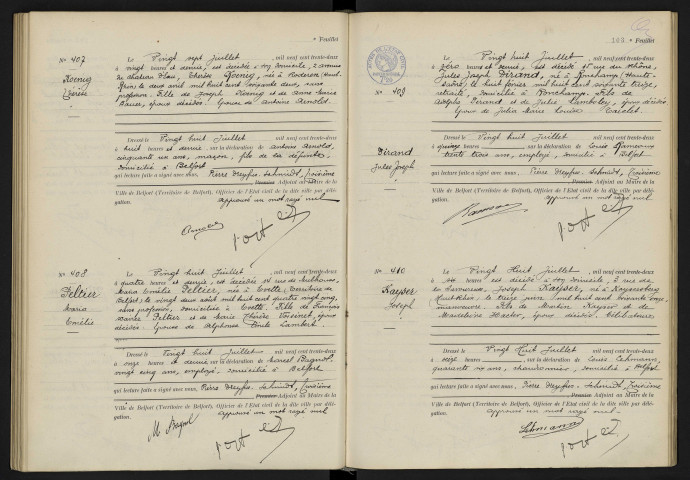 Feuillet
N° 407
Koenig
Thérèse
Le Vingt sept Juillet, mil neuf cent trente-deux
à vingt heures et demie, est décédée à son domicile, 2 avenue
du château d'Eau, Thérèse Koenig, née à Roderen (Haut-
Rhin) le deux avril mil huit cent soixante deux, sans
profession. Fille de Joseph Koenig et de Anne Marie
époux décédés. Epouse de Antoine Arnold.
Dressé le Vingt huit Juillet, mil neuf cent trente-deux
à huit heures et demie sur la déclaration de Antoine Arnold,
cinquante un ans, maçon, fils de la défunte,
domicilié à Belfort
qui lecture faite a signé avec nous, Pierre Dreyfus-Schmidt, troisième
Premier Adjoint au Maire de la
Ville de Belfort (Territoire de Belfort), Officier de l'Etat civil de la dite ville par délé-
gation. approuvé un mot rayé nul
N° 408
Peltier
Maria
Emélie
Le Vingt huit Juillet, mil neuf cent trente-deux
à quatre heures et demie, est décédée rue de Mulhouse,
Maria Emélie Peltier, née à Evette (Territoire de
Belfort), le vingt deux août mil huit cent quatre vingt cinq,
sans profession, domiciliée à Evette. Fille de François
Xavier Peltier et de Marie Thérèse Voisinet, époux
décédés. Epouse de Alphonse Emile Lambert.
Dressé le Vingt huit Juillet, mil neuf cent trente-deux
à onze heures et demie sur la déclaration de Marcel Bagnol,
vingt cinq ans, employé, domicilié à Belfort
qui lecture faite a signé avec nous, Pierre Dreyfus-Schmidt, troisième
Premier Adjoint au Maire de la
Ville de Belfort (Territoire de Belfort), Officier de l'Etat civil de la dite ville par délé-
gation. approuvé un mot rayé nul
M Bagnol
103 Feuillet
N° 409
Dirand
Jules Joseph
Le Vingt huit Juillet, mil neuf cent trente-deux
à zéro heure et demie, est décédé, rue du Rhône,
Jules Joseph Dirand, né à Ronchamp (Haute-
Saône) le huit février mil huit cent soixante treize,
retraité, domicilié à Ronchamp. Fils de
Adolphe Dirand et de Julie Lamboley, époux décédés
Epoux de Julie Marie Louise
Dressé le Vingt huit Juillet, mil neuf cent trente-deux
à quinze heures sur la déclaration de Louis
trente trois ans, employé, domicilié à Belfort
qui lecture faite a signé avec nous, Pierre Dreyfus-Schmidt, troisième
Premier Adjoint au Maire de la
Ville de Belfort (Territoire de Belfort), Officier de l'Etat civil de la dite ville par délé-
gation. approuvé un mot rayé nul
N° 410
Kayser
Joseph
Le Vingt Huit Juillet, mil neuf cent trente-deux
à six heures est décédé à son domicile, 2 rue de
la Savoureuse, Joseph Kayser, né à Kaysersberg
(Haut-Rhin) le treize juin mil huit cent soixante onze,
manoeuvre. Fils de Martin Kayser et de
Madeleine Hector, époux décédés. Célibataire
Dressé le Vingt Huit Juillet, mil neuf cent trente-deux
à seize heures sur la déclaration de Louis Lehmann,
quarante six ans, chaudronnier, domicilié à Belfort
qui lecture faite a signé avec nous, Pierre Dreyfus-Schmidt, troisième
Premier Adjoint au Maire de la
Ville de Belfort (Territoire de Belfort), Officier de l'Etat civil de la dite ville par délé-
gation. approuvé un mot rayé nul
Lehmann